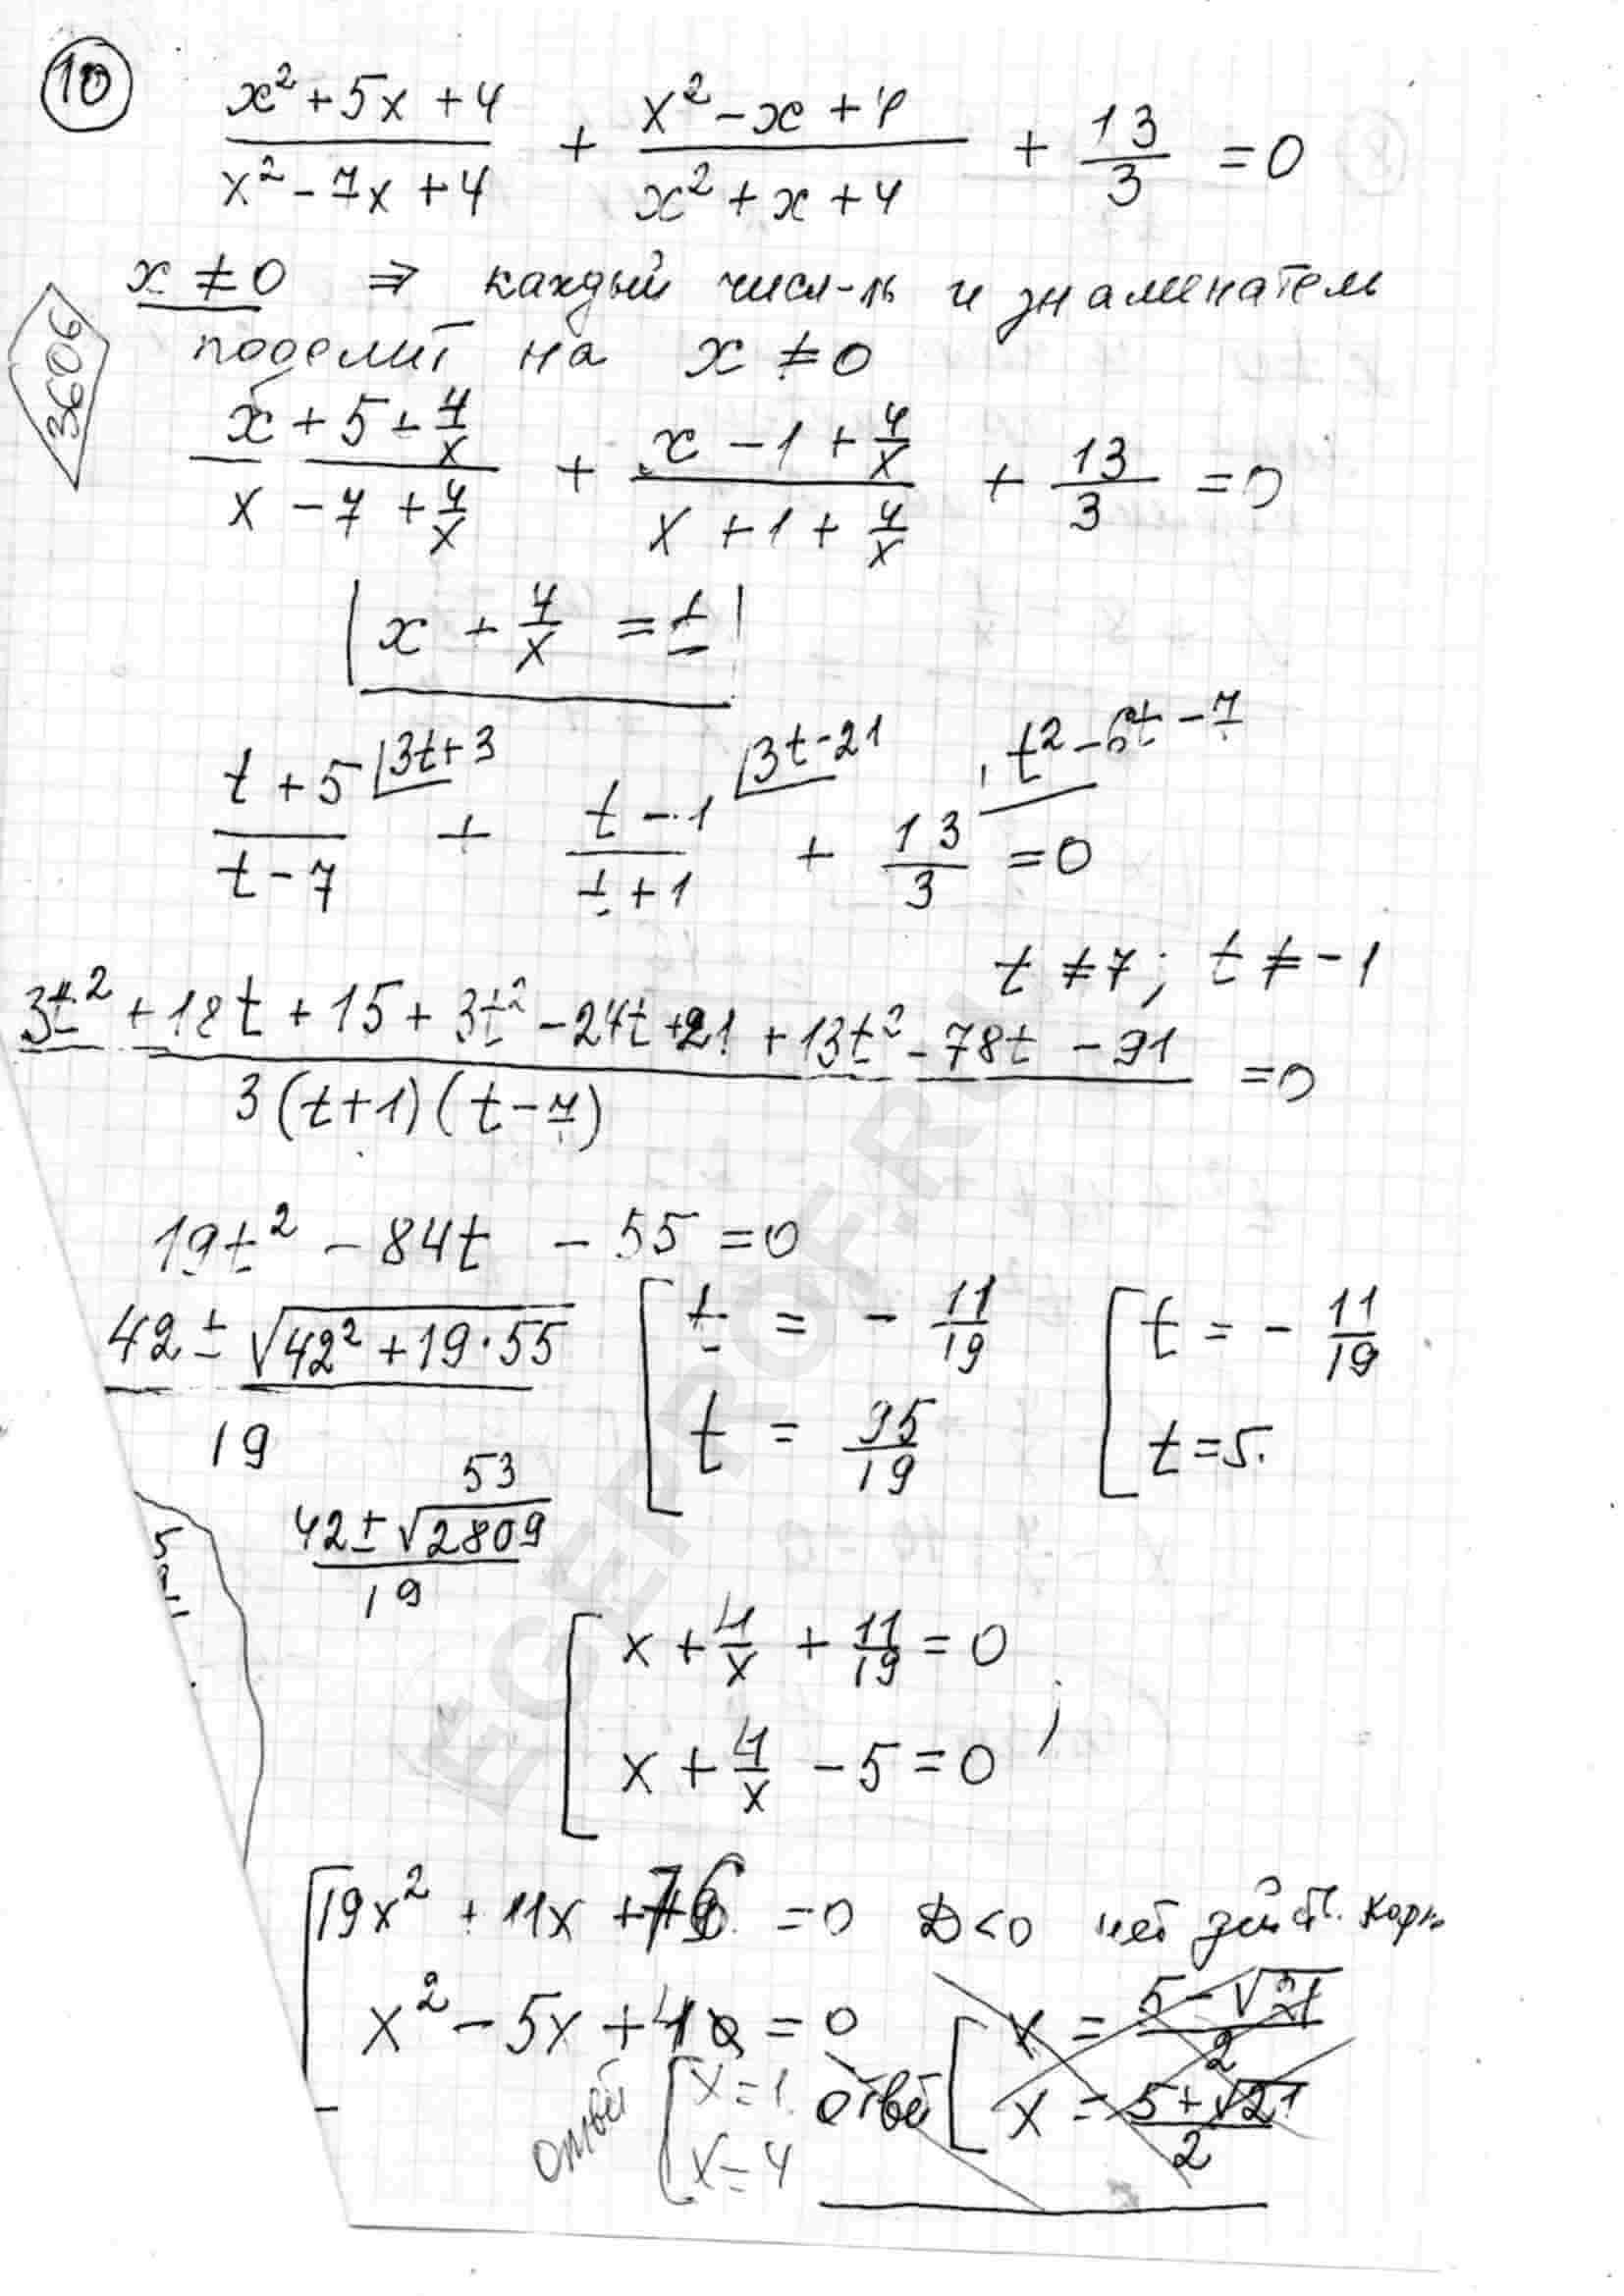 10
x² + 5x + 4 / x² - 7x + 4 + x² - x + 4 / x² + x + 4 + 13/3 = 0
x ≠ 0 ⇒ каждый числ-ль и знаменатель
3606
поделит на x ≠ 0
x + 5 + 4/x / x - 7 + 4/x + x - 1 + 4/x / x + 1 + 4/x + 13/3 = 0
x + 4/x = t
t + 5 / t - 7 |3t+3 + t - 1 / t + 1 |3t-21 + 13/3 |t² - 6t - 7 = 0
t ≠ 7; t ≠ -1
3t² + 18t + 15 + 3t² - 24t + 21 + 13t² - 78t - 91 / 3(t+1)(t-7) = 0
19t² - 84t - 55 = 0
42 ± √42² + 19·55 / 19 [ t = - 11/19 [ t = - 11/19
t = 95/19 t = 5.
42 ± √2809 / 19 53
[ x + 4/x + 11/19 = 0
x + 4/x - 5 = 0 ;
[ 19x² + 11x + 76 = 0 D<0 нет дейст. корн
x² - 5x + 4 = 0 [ x = 5 - √21 / 2
ответ [ x = 1 ответ x = 5 + √21 / 2
x = 4
EGEPROF.RU